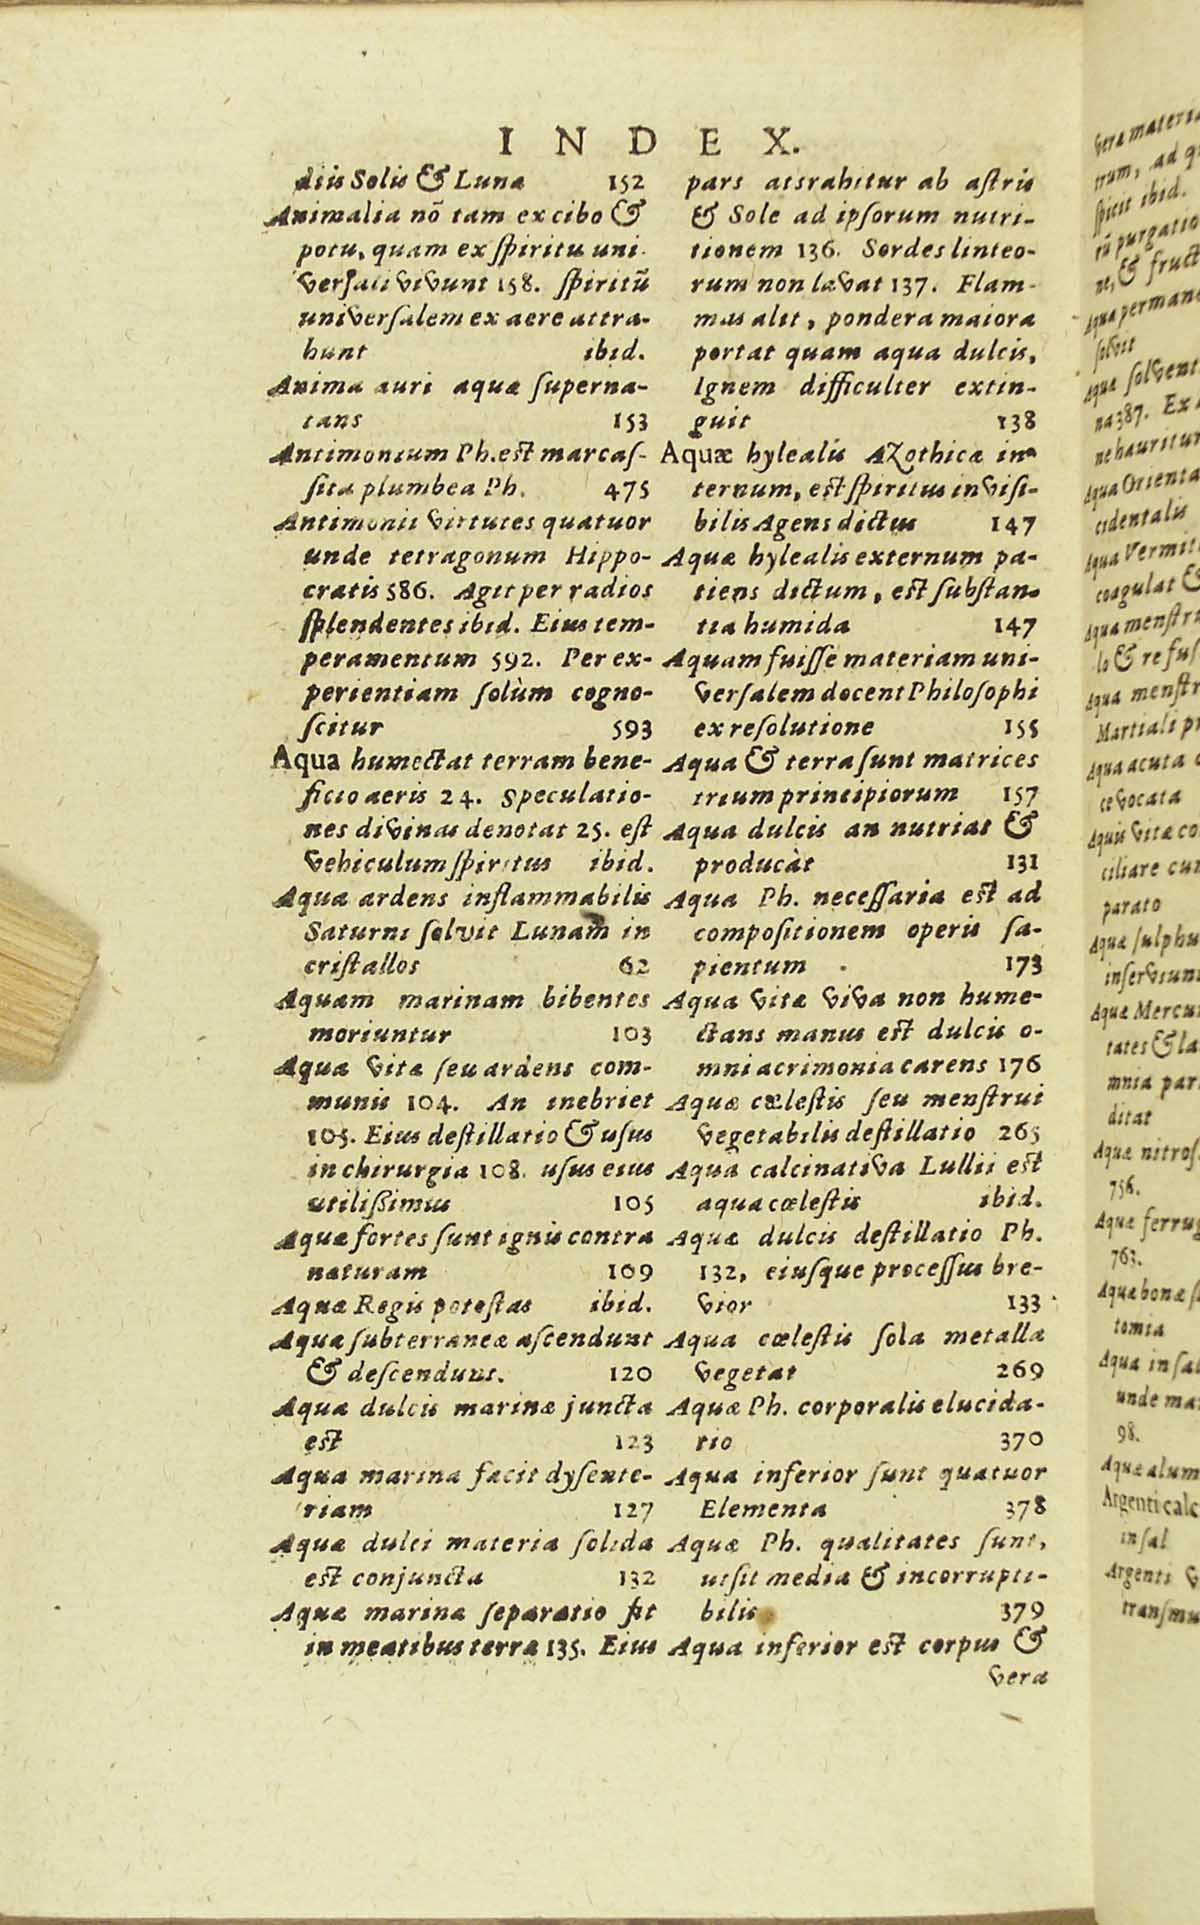 INDEX.
diis Solis & Lunæ 152
Animalia nõ tam ex cibo &
potu, quam ex spiritu uni-
versali vivunt 158. spiritũ
universalem ex aere attra-
hunt ibid.
Anima auri aquæ superna-
tans 153
Antimonium Ph. est marcas-
sita plumbea Ph. 475
Antimonii virtutes quatuor
unde tetragonum Hippo-
cratis 586. Agit per radios
splendentes ibid. Eius tem-
peramentum 592. Per ex-
perientiam solùm cogno-
scitur 593
Aqua humectat terram bene-
ficio aeris 24. Speculatio-
nes divinas denotat 25. est
vehiculum spiritus ibid.
Aqua ardens inflammabilis
Saturni solvit Lunam in
cristallos 62
Aquam marinam bibentes
moriuntur 103
Aqua vitæ seu ardens com-
munis 104. An inebriet
105. Eius destillatio & usus
in chirurgia 108. usus eius
utilißimus 105
Aquæ fortes sunt ignis contra
naturam 109
Aquæ Regis potestas ibid.
Aqua subterraneæ ascendunt
& descendunt. 120
Aqua dulcis marinæ juncta
est 123
Aqua marina facit dysente-
riam 127
Aquæ dulci materia solida
est conjuncta 132
Aquæ marinæ separatio fit
in meatibus terræ 135. Eius
pars atsrahitur ab astris
& Sole ad ipsorum nutri-
tionem 136. Sordes linteo-
rum non lavat 137. Flam-
mas alit, pondera maiora
portat quam aqua dulcis,
Ignem difficulter extin-
guit 138
Aquæ hylealis AZothicæ in-
ternum, est spiritus invisi-
bilis Agens dictus 147
Aquæ hylealis externum pa-
tiens dictum, est substan-
tia humida 147
Aquam fuisse materiam uni-
versalem docent Philosophi
ex resolutione 155
Aqua & terra sunt matrices
trium principiorum 157
Aqua dulcis an nutriat &
producàt 131
Aqua Ph. necessaria est ad
compositionem operis sa-
pientum 173
Aqua vitæ viva non hume-
ctans manus est dulcis o-
mni acrimonia carens 176
Aquæ cœlestis seu menstrui
vegetabilis destillatio 265
Aqua calcinativa Lullii est
aqua cœlestis ibid.
Aquæ dulcis destillatio Ph.
132, eiusque processus bre-
vior 133
Aqua cœlestis sola metalla
vegetat 269
Aquæ Ph. corporalis elucida-
tio 370
Aqua inferior sunt quatuor
Elementa 378
Aquæ Ph. qualitates sunt,
ut sit media & incorrupti-
bilis 379
Aqua inferior est corpus &
vera
vera materia
trum, ad
ibid.
purgatio
ne, & fruct
Aqua perman
solvit
Aquæ solvent
na 387. Ex
ne hauritur
Aqua Orienta
cidentalis
Aqua Vermi
coagulat &
Aqua menstru
lo & refus
Aqua menstr
Martiali
Aqua acuta
ce vocata
Aquis vitæ co
ciliare cum
parato
Aquæ sulphu
inserviunt
Aquæ Mercu
tates & la
mnia par
ditat
Aquæ nitros
756.
Aquæ ferrug
763.
Aquæ bonæ
tomia
Aqua in sal
unde ma
98.
Aquæ alum
Argenti calc
in sal
Argenti
transmu